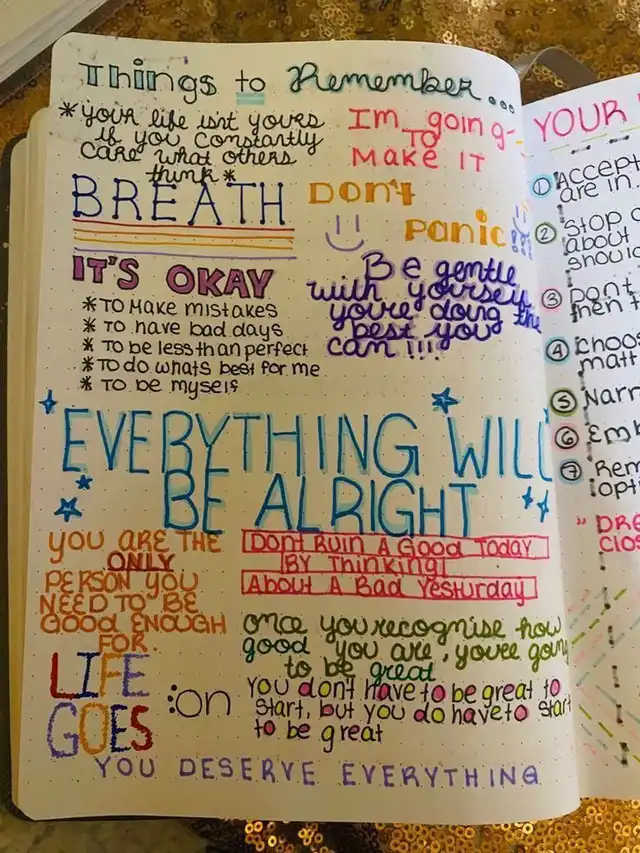 Things to Remember...
*your life isn't yours
if you constantly
care what others
think*
I'm going
TO
MAKE IT
BREATH
DON't
PANIC!!!
IT'S OKAY
*TO MAKE MISTAKES
* TO have bad days
* To be less than perfect
*To do whats best for me
* TO be myself
Be gentle
with yourself
you're doing the
best you
can!!!
EVERYTHING WILL
BE ALRIGHT
YOU ARE THE
ONLY
PERSON YOU
NEED TO BE
Good ENOUGH
FOR.
Dont Ruin A Good Today
By Thinking
About A Bad Yesturday
once you recognise how
good you are, you're going
to be great
LIFE
GOES
:on
You don't have to be great to
start, but you do have to start
to be great
YOU DESERVE EVERYTHING
YOUR
① Accept
are in
② Stop
about
shoul
③ Don't
④ Choos
matt
⑤ Narr
⑥ Emb
⑦ Rem
opti
" DRE
Clos